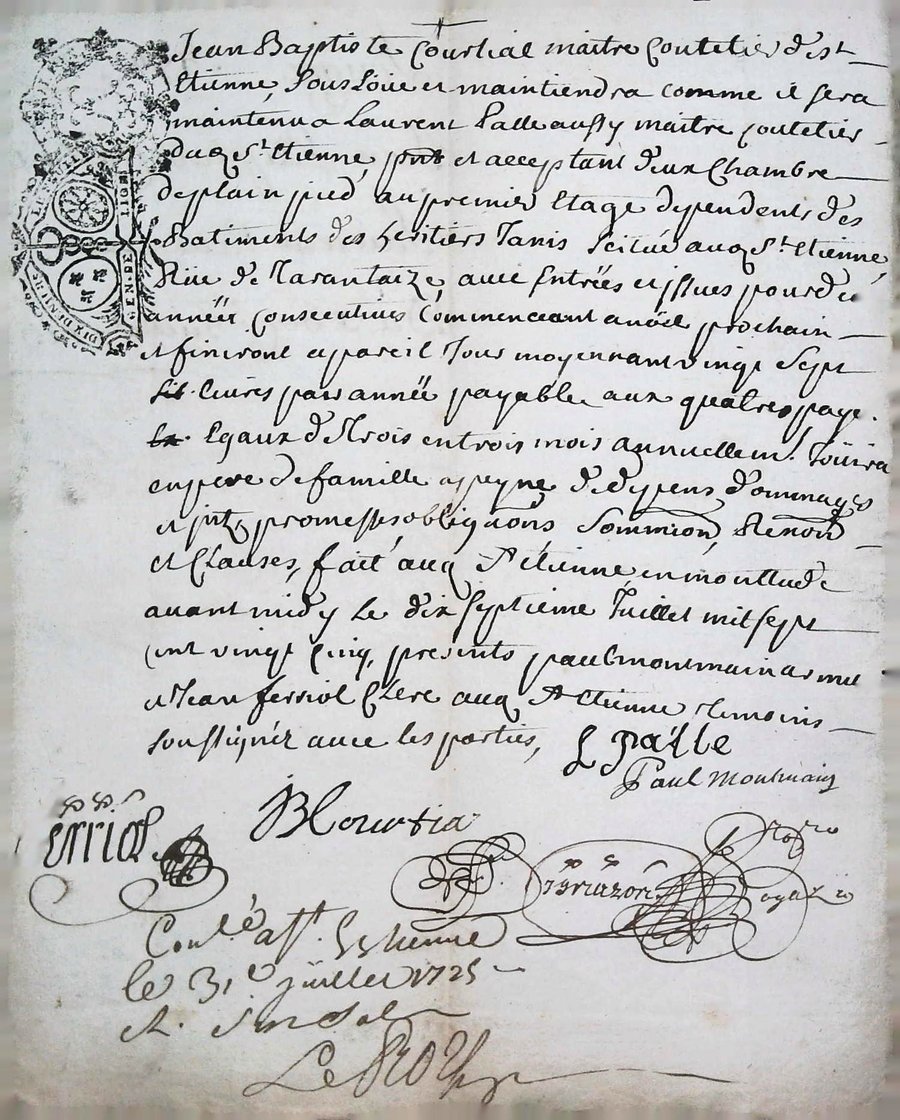 Jean Baptiste Courtial maitre Coutelier d'st
Etienne, sousLoüe et maintiendra comme il sera
maintenu a Laurent Palle aussy maitre coutelier
dud St. Etienne, pnt et acceptant deux Chambre
de plain pied au premier Etage dependents des
Batiments des heritiers Janis scitué aud St. Etienne
Rüe de Tarantaize avec Entrées et jssues pour
année Consecutives Commenceant a noël prochain
et finiront a pareil Jour moyennant vingt sept
livres par année payable aux quatres page.
Egaux de trois en trois mois annuellemt. Joüira
en pere de famille a peyne de depens dommages
et promesses obligaons sommion, Renon
et Clauses, fait aud St Etienne en mon Etude
avant midy Le dix septieme Juillet mil sept
cent vingt Cinq, presents paul montmain
et Jean ferriol Clerc aud St Etienne temoins
soussignéz avec les parties,
L Palle
Paul Montmain
JB Courtia
ferriol
St Etienne
le 31e juillet 1725
GEN DE LION
DIX DENIERS